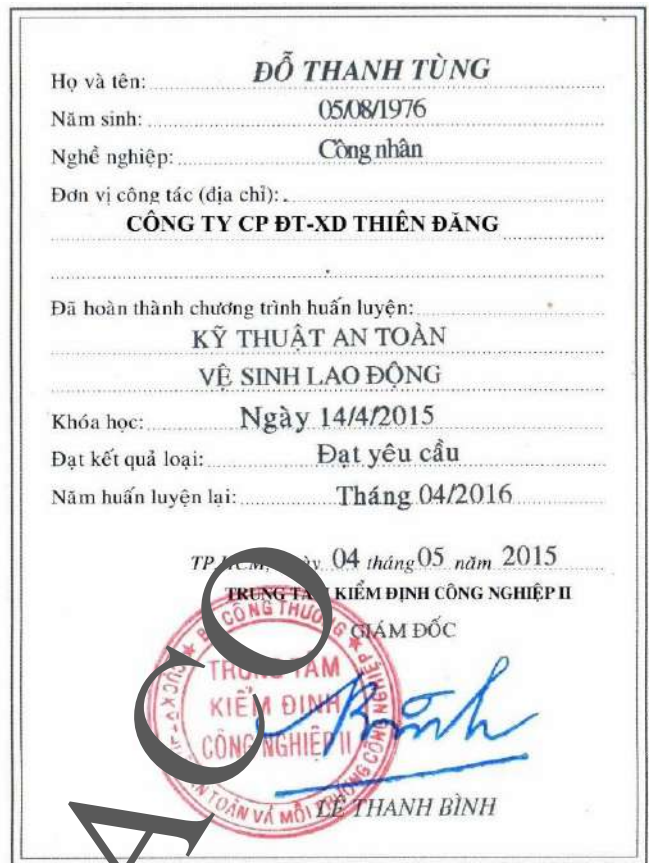 Họ và tên: ĐỖ THANH TÙNG
Năm sinh: 05/08/1976
Nghề nghiệp: Công nhân
Đơn vị công tác (địa chỉ):
CÔNG TY CP ĐT-XD THIÊN ĐĂNG
Đã hoàn thành chương trình huấn luyện:
KỸ THUẬT AN TOÀN
VỆ SINH LAO ĐỘNG
Khóa học: Ngày 14/4/2015
Đạt kết quả loại: Đạt yêu cầu
Năm huấn luyện lại: Tháng 04/2016
TP.HCM, 04 tháng 05 năm 2015
TRUNG TÂM KIỂM ĐỊNH CÔNG NGHIỆP II
GIÁM ĐỐC
CÔNG THƯƠNG
TRUNG TÂM
KIỂM ĐỊNH
CÔNG NGHIỆP II
TOÀN VÀ MÔI TRƯỜNG CÔNG NGHIỆP
Bình
LÊ THANH BÌNH
ACO